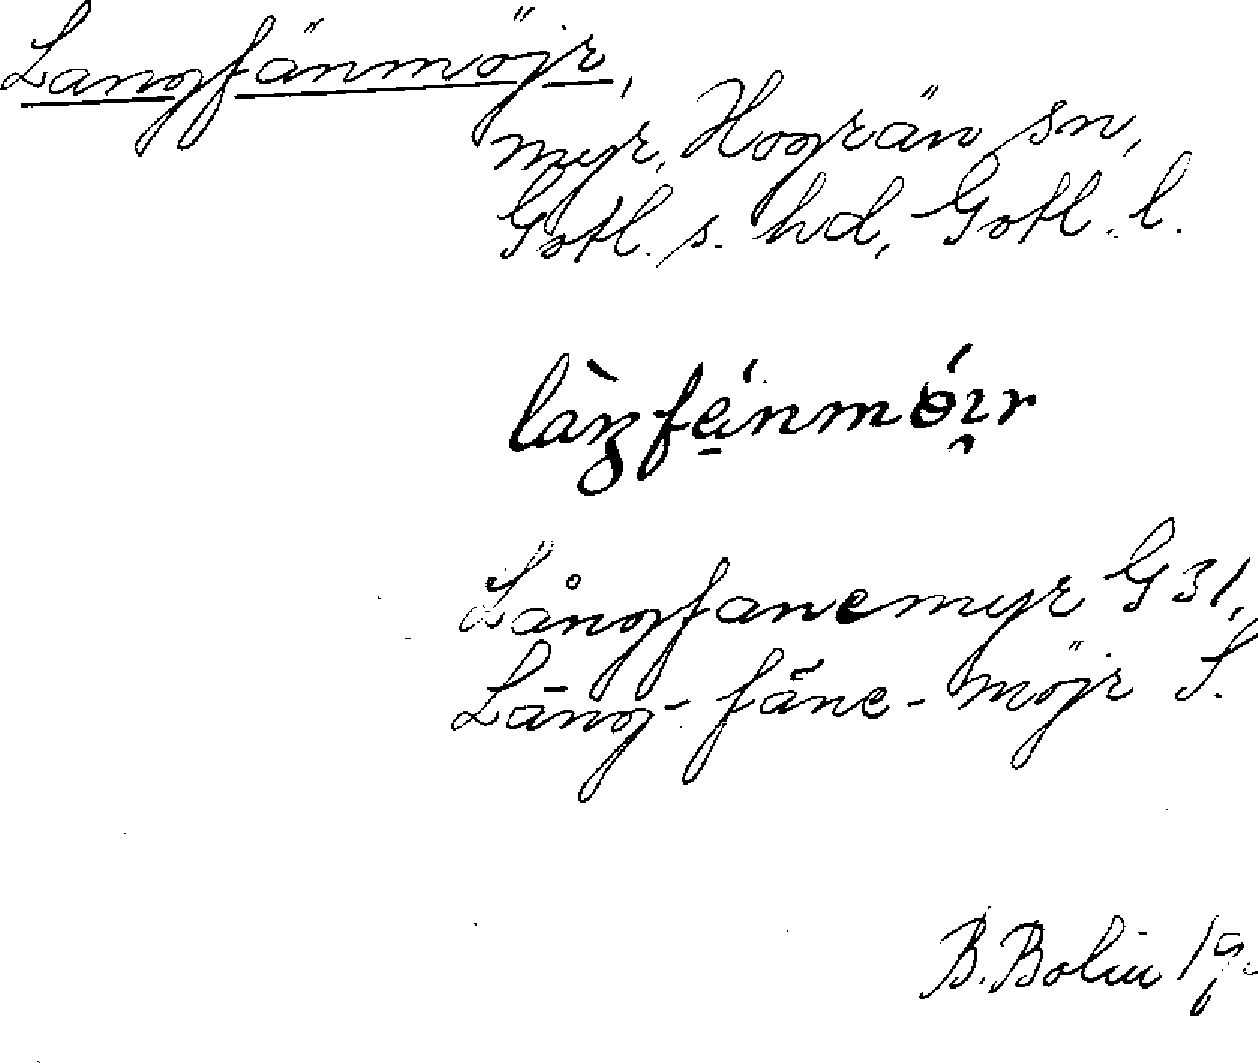 Langfänmöjr,
myr, Hogrän sn,
Gotl. s. hd, Gotl. l.
Långfanemyr G 31,
Lāng-fāne-möjr S.
B. Bolin